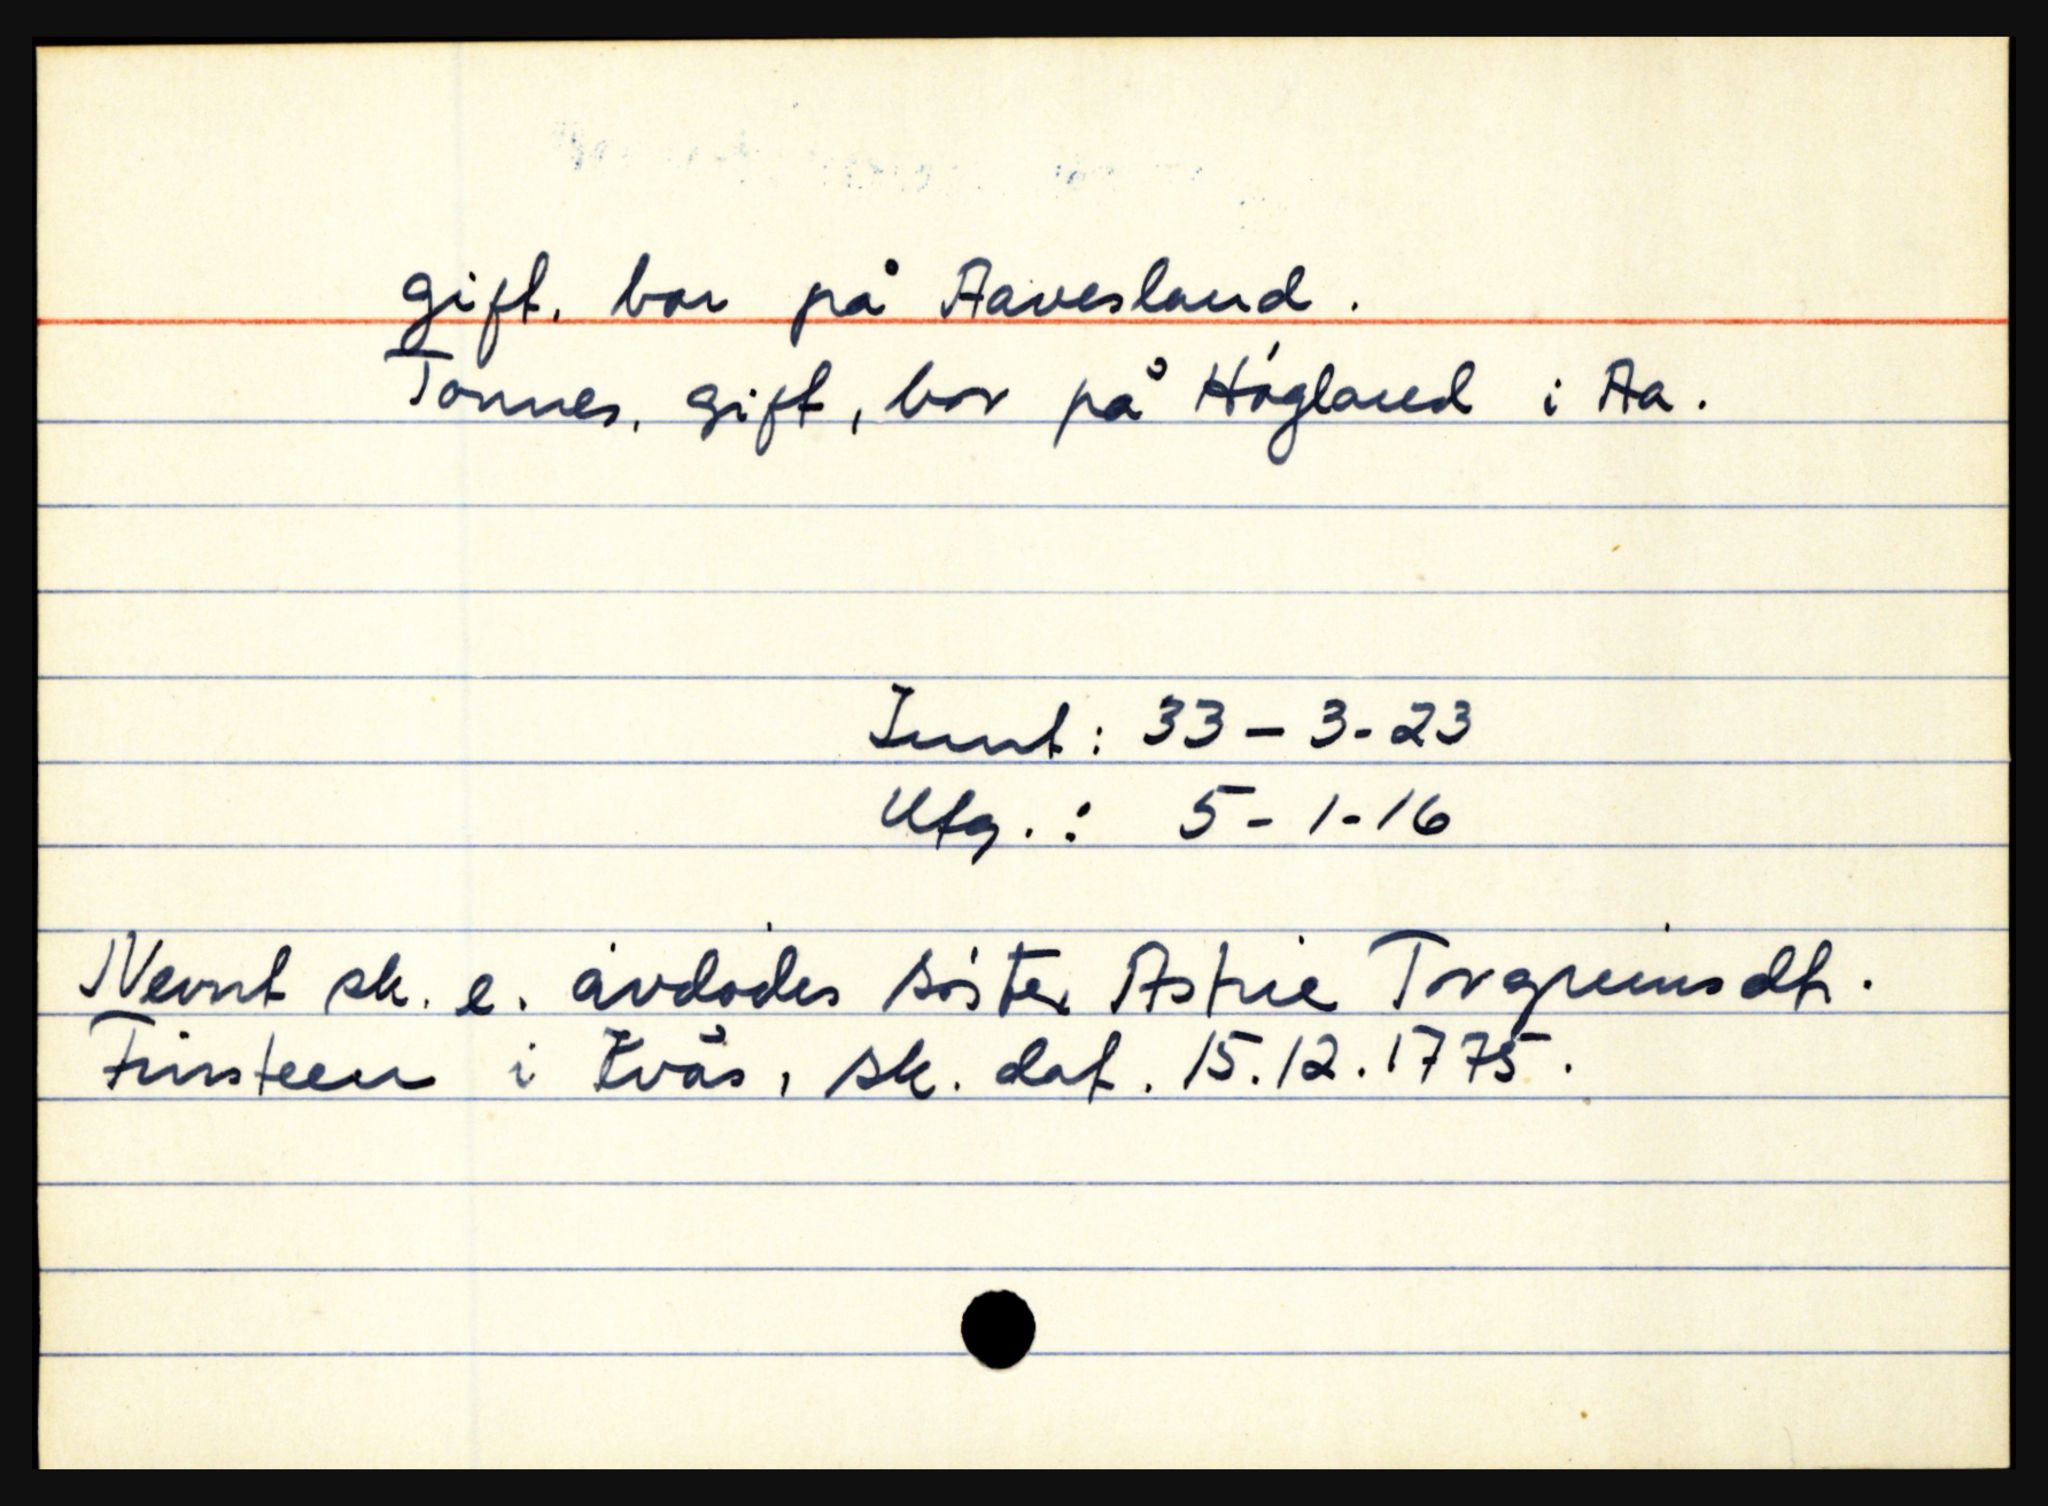 gift, bor på Aavesland.
Tønnes, gift, bor på Høgland i Aa.
Innt: 33 - 3 - 23
Utg.: 5 - 1 - 16
Nevnt sk. e. avdødes søster Astrie Torgrimsdtr.
Finsteen i Kvås, sk. dat. 15.12.1775.